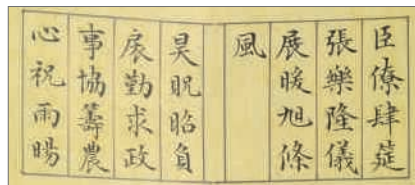 臣僚肆筵
張樂隆儀
展暖旭條
風
昊貺昭負
扆勤求政
事協籌農
心祝雨暘